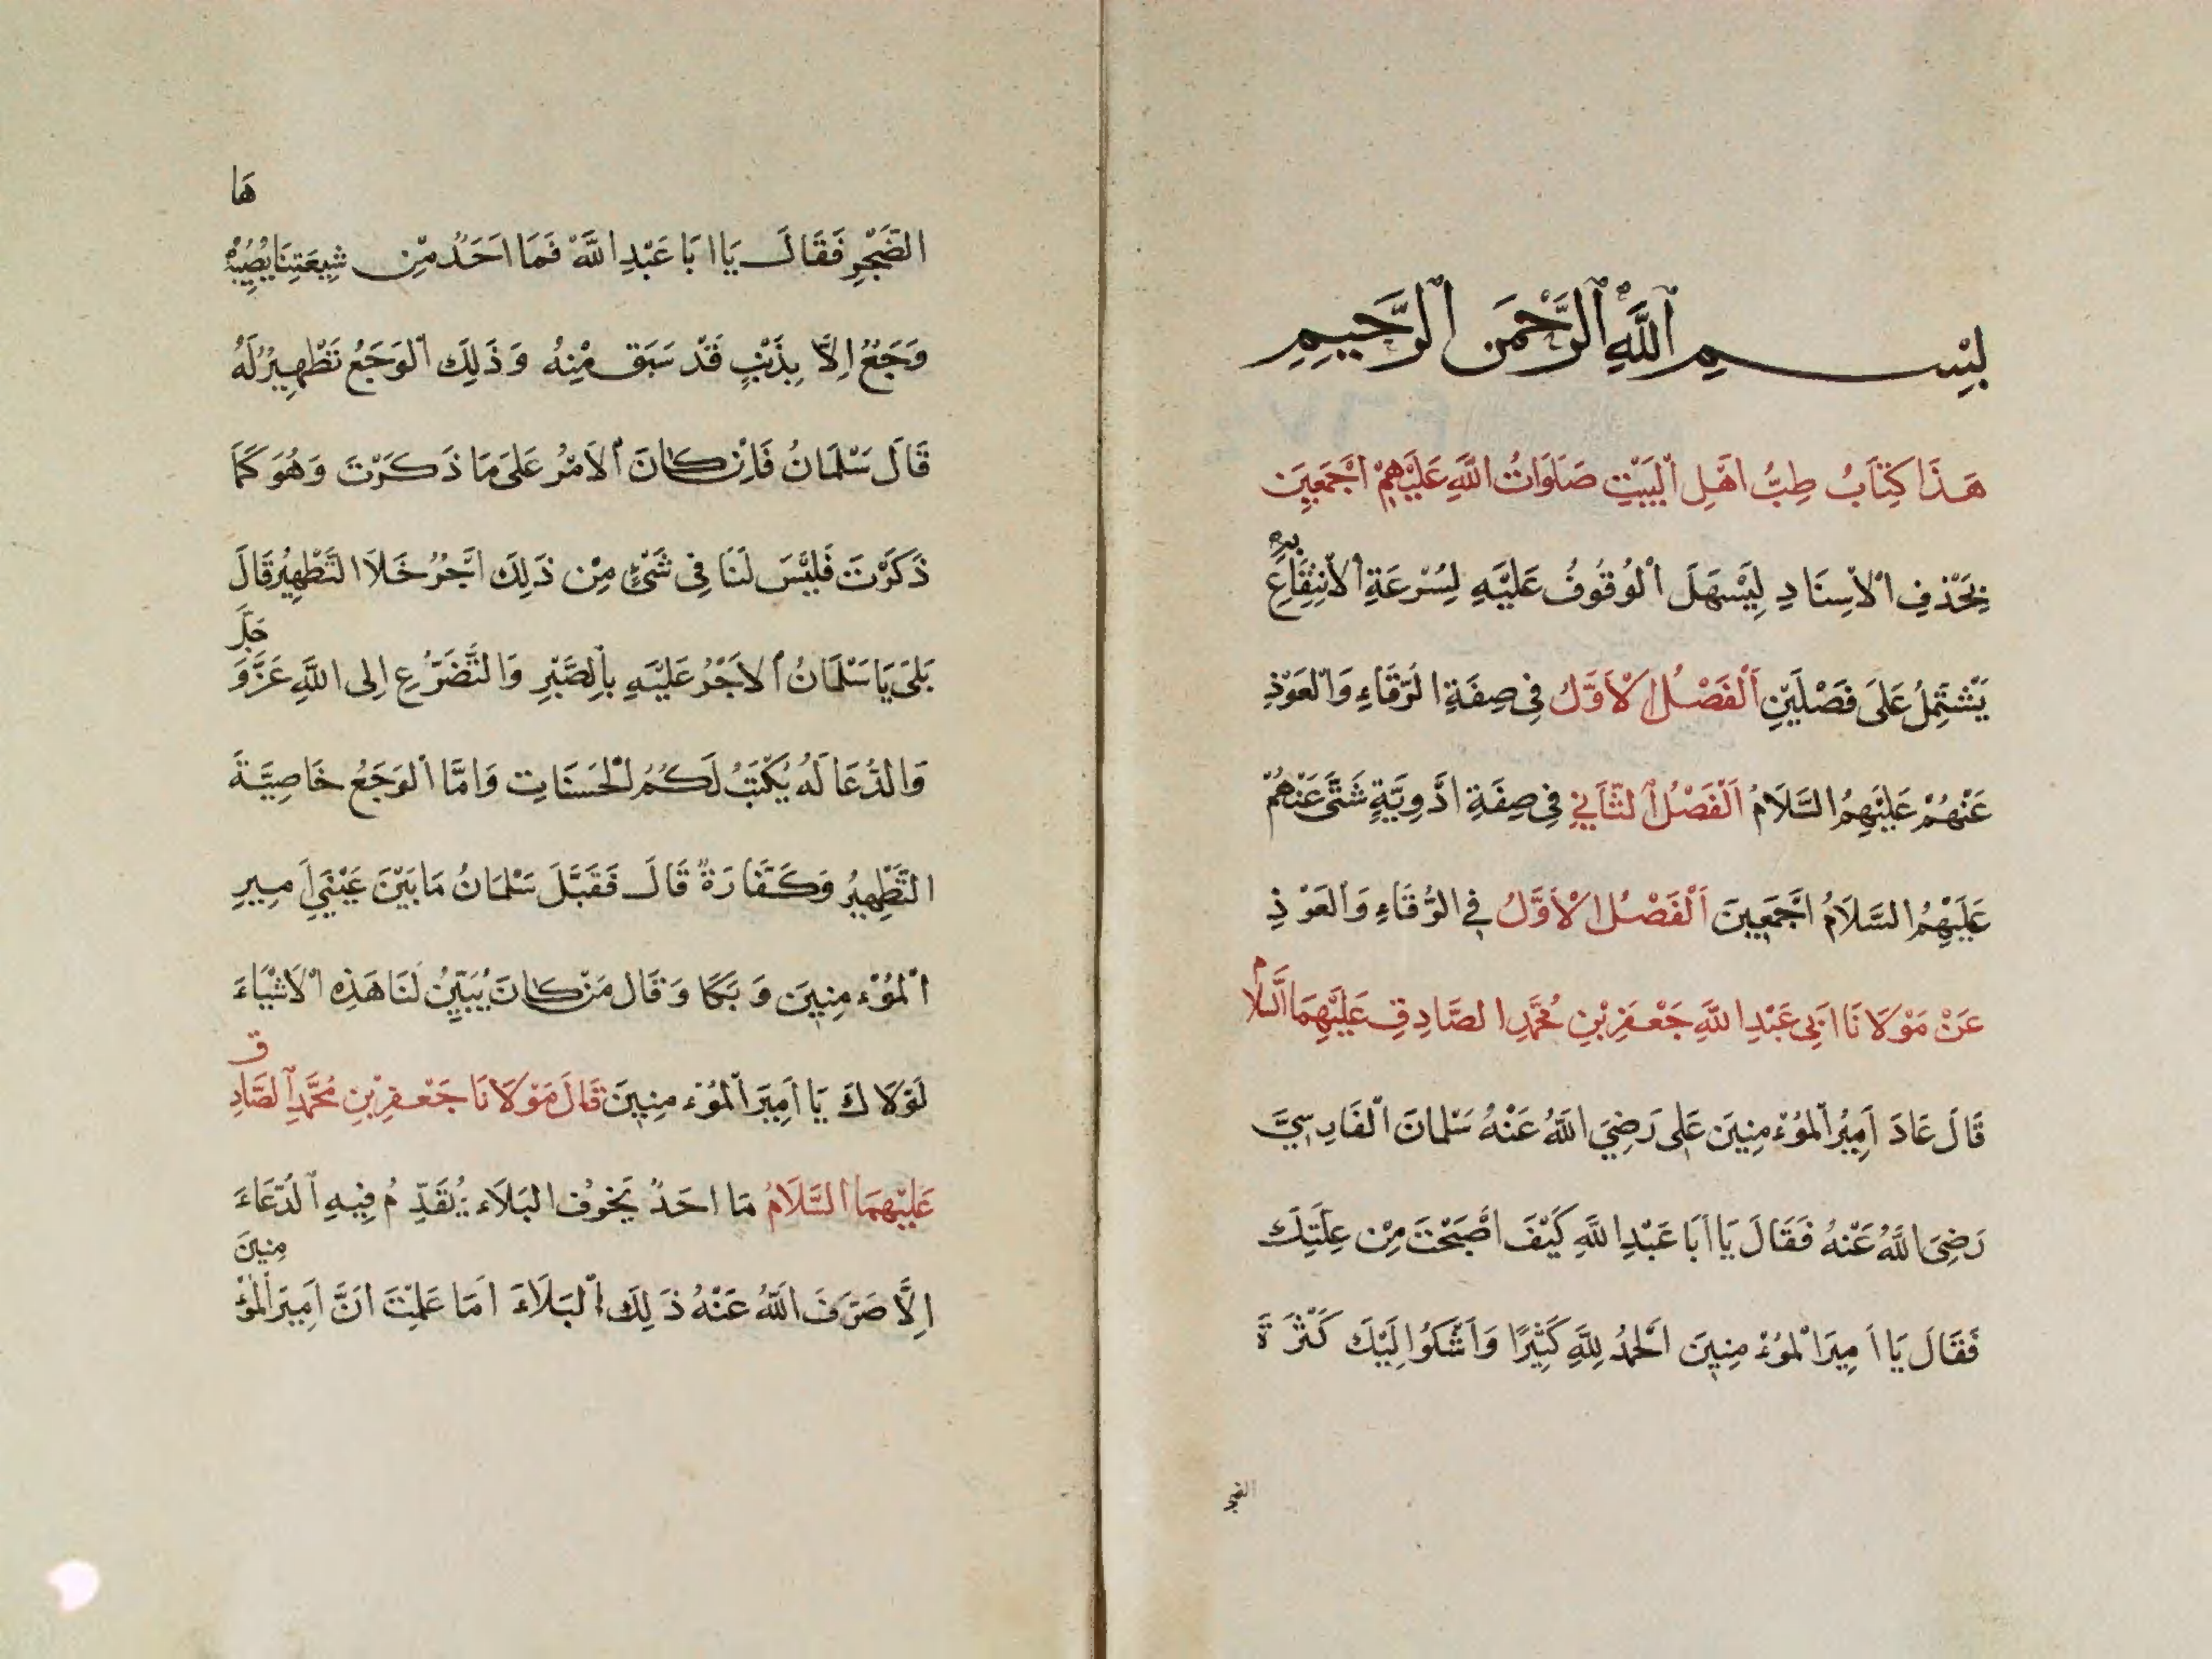 بِسْمِ ٱللَّهِ ٱلرَّحْمَنِ ٱلرَّحِيمِ
هَذَا كِتَابُ طِبُّ اَهْلِ الْبَيْتِ صَلَوَاتُ اللَّهِ عَلَيْهِمْ اَجْمَعِينَ
بِحَذْفِ الْاِسِنَادِ لِيَسْهَلَ الْوُقُوفُ عَلَيْهِ لِسُرْعَةِ الْاِنْتِفَاعِ بِهِ
يَشْتَمِلُ عَلَى فَصْلَيْنِ اَلْفَصْلُ الْاَوَّلُ فِى صِفَةِ الرُّقَاءِ وَالْعَوْذِ
عَنْهُمْ عَلَيْهِمُ السَّلَامُ اَلْفَصْلُ الثَّانِي فِى صِفَةِ اَدْوِيَّةٍ شَتَّى عَنْهُمْ
عَلَيْهِمُ السَّلَامُ اَجْمَعِينَ اَلْفَصْلُ الْاَوَّلُ فِى الرُّقَاءِ وَالْعَوْذِ
عَنْ مَوْلَانَا اَبِى عَبْدِ اللَّهِ جَعْفَرِ بْنِ مُحَمَّدِ الصَّادِقِ عَلَيْهِمَا السَّلَامُ
قَالَ عَادَ اَمِيرُ الْمُؤْمِنِينَ عَلِى رَضِيَ اللَّهُ عَنْهُ سَلْمَانَ الْفَارِسِيَّ
رَضِىَ اللَّهُ عَنْهُ فَقَالَ يَا اَبَا عَبْدِ اللَّهِ كَيْفَ اَصْبَحْتَ مِنْ عِلَّتِكَ
فَقَالَ يَا اَمِيرَ الْمُؤْمِنِينَ اَلْحَمْدُ لِلَّهِ كَثِيرًا وَاَشْكُوا لَيْكَ كَثْرَةَ
الضَّجْرِ فَقَالَ يَا اَبَا عَبْدِ اللَّهِ فَمَا اَحَدٌ مِنْ شِيعَتِنَا يُصِيبُهُ
هَا
وَجَعٌ اِلَّا بِذَنْبٍ قَدْ سَبَقَ مِنْهُ وَذَلِكَ الْوَجَعُ تَطْهِيرٌ لَهُ
قَالَ سَلْمَانُ فَاِنْ كَانَ الْاَمْرُ عَلَى مَا ذَكَرْتَ وَهُوَ كَمَا
ذَكَرْتَ فَلَيْسَ لَنَا فِى شَىْءٍ مِنْ ذَلِكَ اَجْرٌ خَلَا التَّطْهِيرُ قَالَ
بَلَى يَا سَلْمَانُ الْاَجْرُ عَلَيْهِ بِالصَّبْرِ وَالتَّضَرُّعِ اِلى اللَّهِ عَزَّ وَجَلَّ
وَالدُّعَا لَهُ يُكْتَبُ لَكُمُ الْحَسَنَاتِ وَاَمَّا الْوَجَعُ خَاصِيَّةً
التَّطْهِيرُ وَكَفَّارَةٌ قَالَ فَقَبَّلَ سَلْمَانُ مَا بَيْنَ عَيْنَيْ اَمِيرِ
الْمُؤْمِنِينَ وَبَكَا وَقَالَ مَنْ كَانَ يُبَيِّنُ لَنَا هَذِهِ الْاَشْيَاءَ
لَوْلَاكَ يَا اَمِيرَ الْمُؤْمِنِينَ قَالَ مَوْلَانَا جَعْفَرِ بْنِ مُحَمَّدِ الصَّادِقِ
عَلَيْهِمَا السَّلَامُ مَا اَحَدٌ يَخَوُفُ الْبَلَاءَ يُقَدِّمُ فِيهِ الدُّعَاءَ
اِلَّا صَرَفَ اللَّهُ عَنْهُ ذَلِكَ الْبَلَاءَ اَمَا عَلِمْتَ اَنَّ اَمِيرَ الْمُؤْمِنِينَ